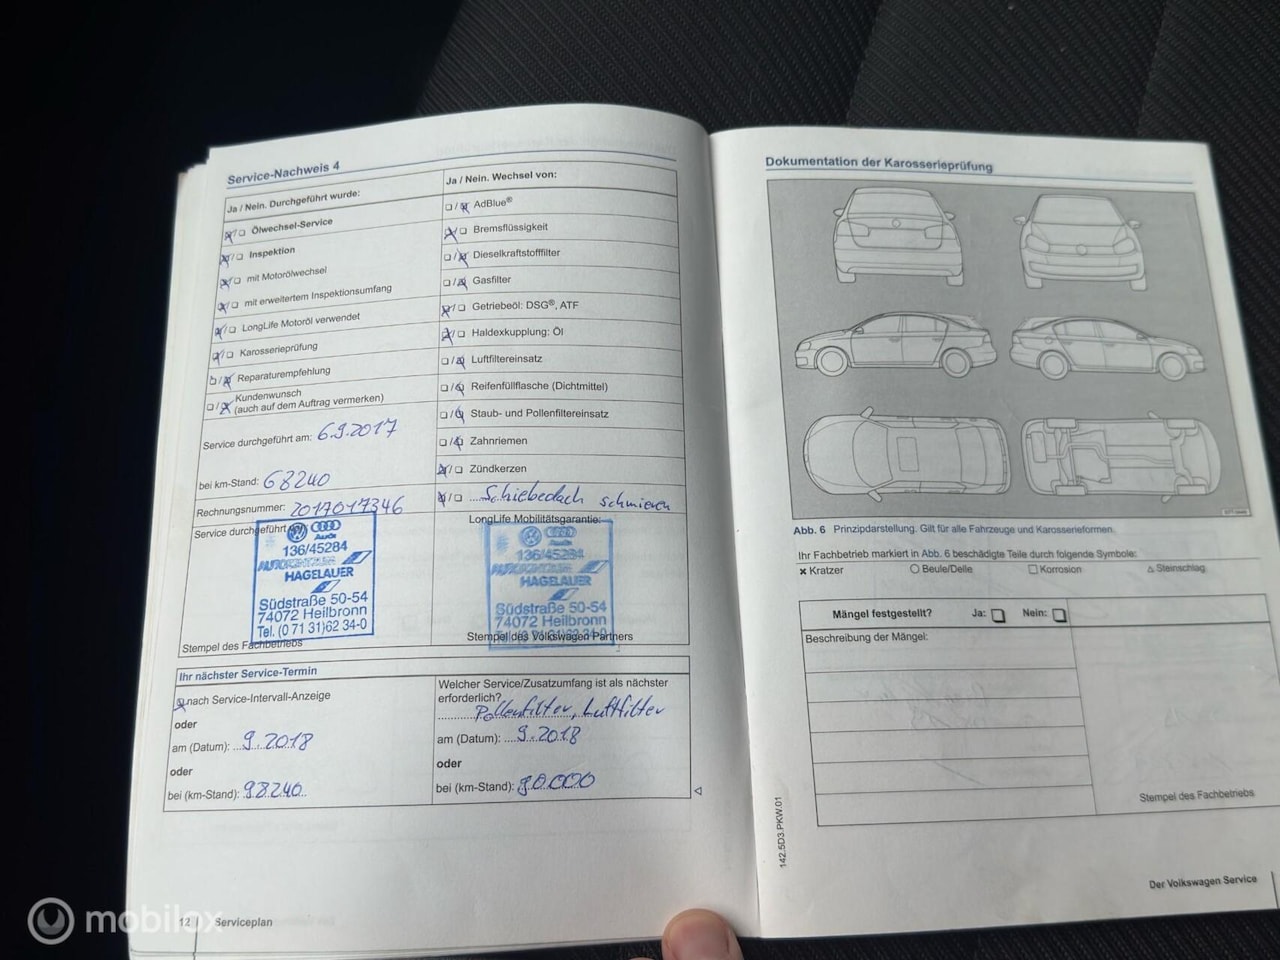 Service-Nachweis 4
Ja / Nein. Durchgeführt wurde:
Ölwechsel-Service
Inspektion
mit Motorölwechsel
mit erweitertem Inspektionsumfang
LongLife Motoröl verwendet
Karosserieprüfung
Reparaturempfehlung
Kundenwunsch
(auch auf dem Auftrag vermerken)
Service durchgeführt am: 6.9.2017
bei km-Stand: 68240
Rechnungsnummer: 2017017346
Service durchgeführt
Audi
136/45284
AUTOZENTRUM
HAGELAUER
Südstraße 50-54
74072 Heilbronn
Tel. (0 71 31)62 34-0
Stempel des Fachbetriebs
Ja / Nein. Wechsel von:
AdBlue®
Bremsflüssigkeit
Dieselkraftstofffilter
Gasfilter
Getriebeöl: DSG®, ATF
Haldexkupplung: Öl
Luftfiltereinsatz
Reifenfüllflasche (Dichtmittel)
Staub- und Pollenfiltereinsatz
Zahnriemen
Zündkerzen
Schiebedach schmieren
LongLife Mobilitätsgarantie:
Audi
136/45284
HAGELAUER
Südstraße 50-54
74072 Heilbronn
Stempel des Volkswagen Partners
Ihr nächster Service-Termin
nach Service-Intervall-Anzeige
oder
am (Datum): 9.2018
oder
bei (km-Stand): 98240
Welcher Service/Zusatzumfang ist als nächster
erforderlich?
Pollenfilter, Luftfilter
am (Datum): 9.2018
oder
bei (km-Stand): 90.000
12 Serviceplan
Dokumentation der Karosserieprüfung
Abb. 6 Prinzipdarstellung. Gilt für alle Fahrzeuge und Karosserieformen.
Ihr Fachbetrieb markiert in Abb. 6 beschädigte Teile durch folgende Symbole:
Kratzer Beule/Delle Korrosion Steinschlag
Mängel festgestellt? Ja: Nein:
Beschreibung der Mängel:
Stempel des Fachbetriebs
142.5D3.PKW.01
Der Volkswagen Service
mobilox